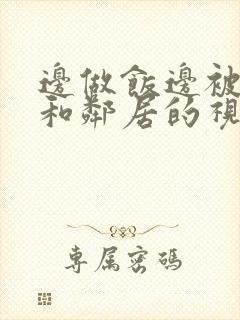 邊做飯邊被
和鄰居的視
専属密碼